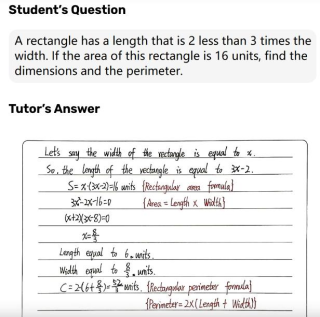 Student's Question
A rectangle has a length that is 2 less than 3 times the
width. If the area of this rectangle is 16 units, find the
dimensions and the perimeter.
Tutor's Answer
Let's say the width of the rectangle is equal to x.
So, the length of the rectangle is equal to 3x-2.
S= x(3x-2)=16 units {Rectangular area formula}
3x²-2x-16=0 {Area = Length x Width}
(x+2)(3x-8)=0
x=8/3
Length equal to 6. units.
Width equal to 8/3. units.
C=2(6+8/3)=52/3 units. {Rectangular perimeter formula}
{Perimeter= 2X(Length + Width)}